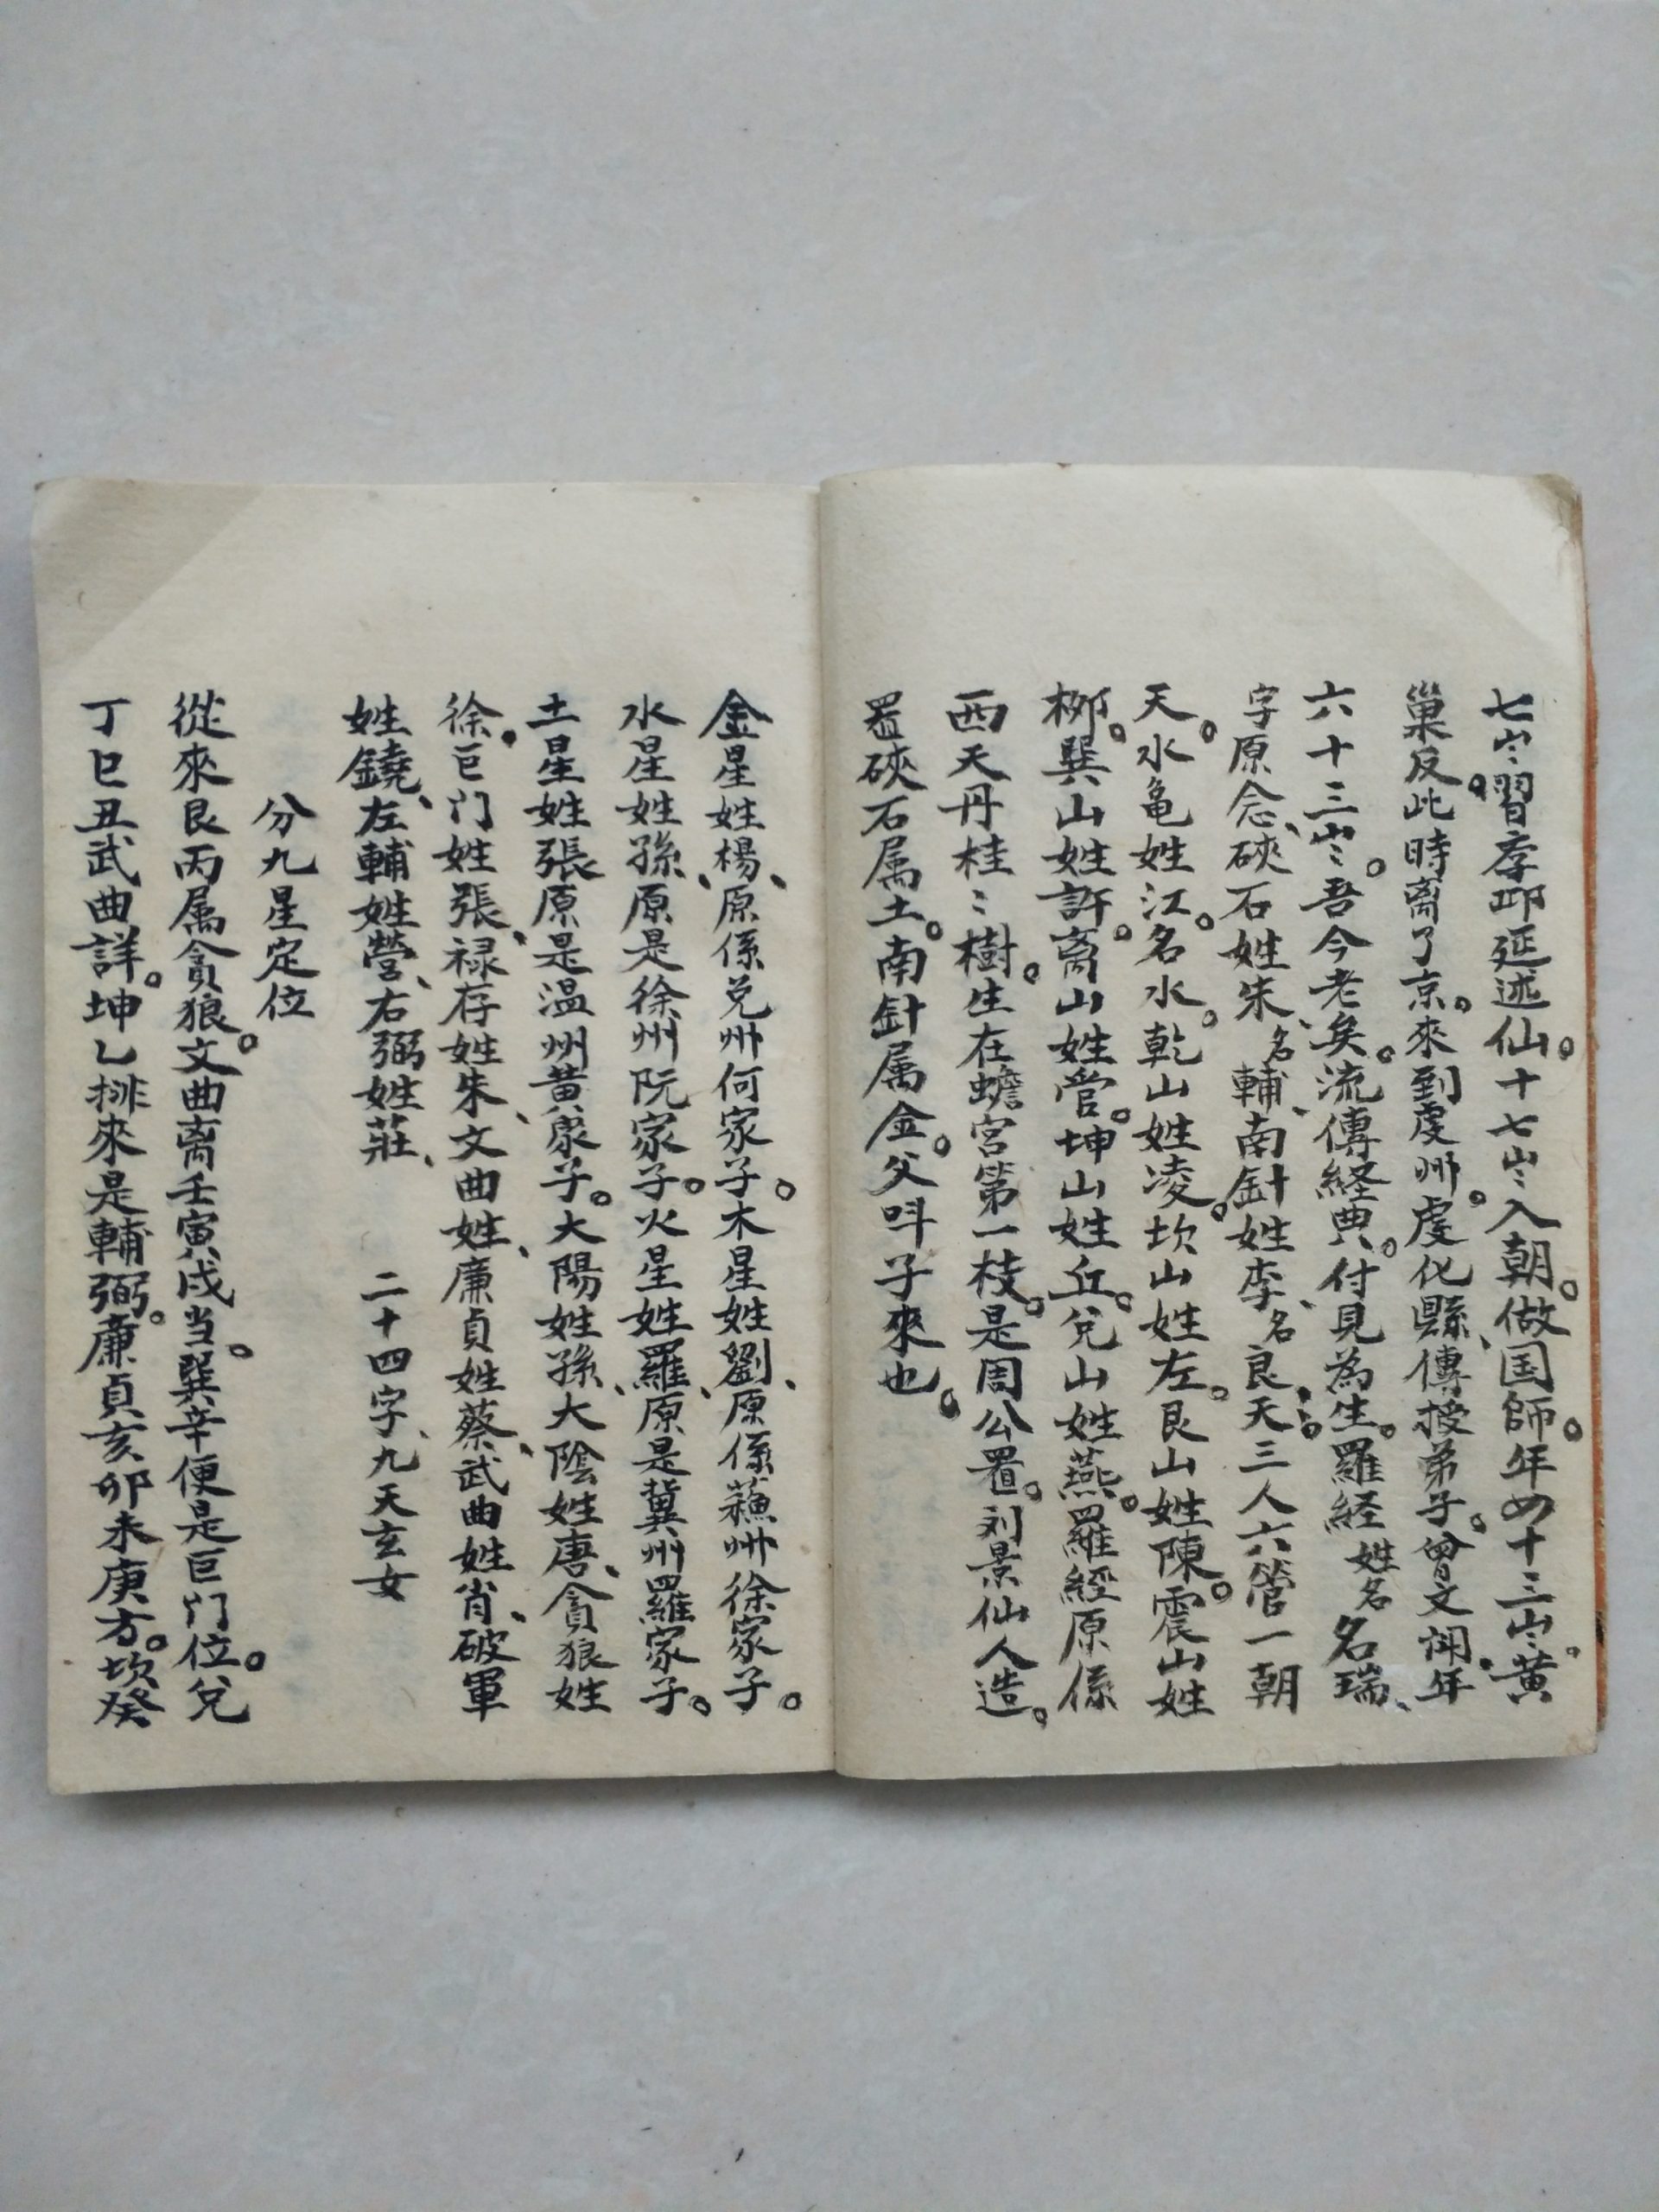 七岁。習李邱延述仙。十七岁入朝。做国師。年四十三岁。黄
巢反此時离了京。來到虔州。虔化縣、傳授弟子。曾文辿年
六十三岁。吾今老矣。流傳経典。付見為生。羅経姓名名瑞、
字原念、硤石姓朱、名輔、南針姓李、名良天。三人六管一朝
天。水亀姓江。名水。乾山姓凌。坎山姓左。艮山姓陳。震山姓
柳。巽山姓許。离山姓管。坤山姓丘。兌山姓燕。羅經原係
西天丹桂〻樹。生在蟾宮第一枝。是周公置。刘景仙人造。
置硤石属土。南針属金。父呌子來也。
金星姓楊、原係兌州何家子。木星姓劉、原係蘓州徐家子。
水星姓孫、原是徐州阮家子。火星姓羅、原是冀州羅家子。
土星姓張原是温州黄家子。大陽姓孫、大陰姓唐、貪狼姓
徐。巨门姓張、禄存姓朱、文曲姓、廉貞姓蔡、武曲姓肖、破軍
姓鐃、左輔姓營、右弼姓莊、 二十四字、九天玄女
分九星定位
從來艮丙属貪狼。文曲离壬寅戍当。巽辛便是巨门位。兌
丁巳丑武曲詳。坤乙排來是輔弼。廉貞亥卯未庚方。坎癸